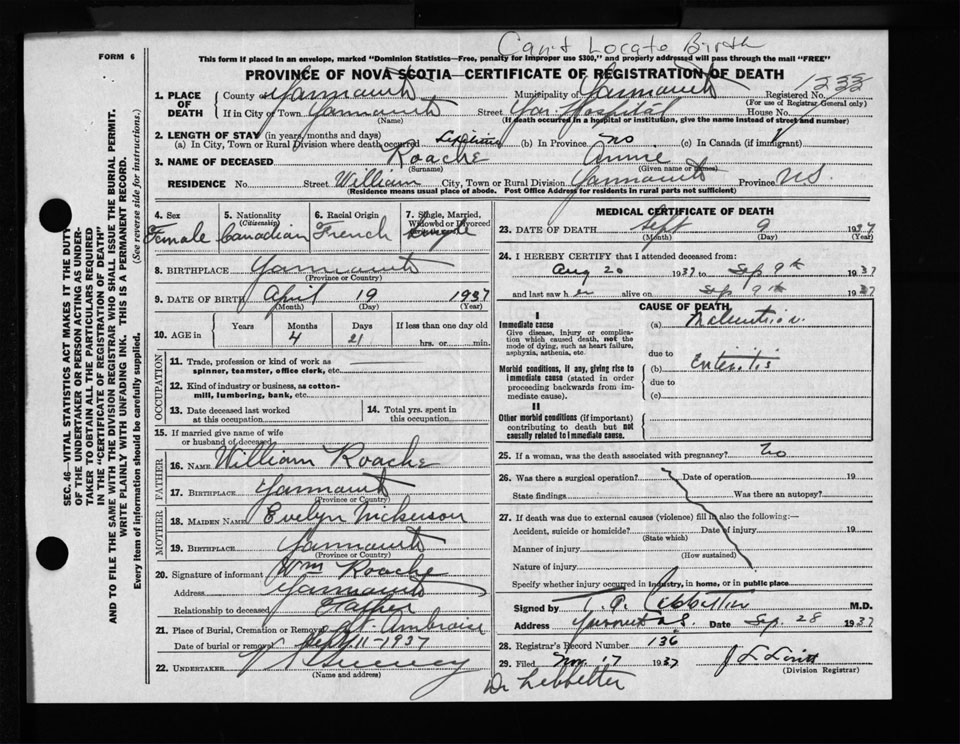 Can't Locate Birth
FORM 6
This form if placed in an envelope, marked "Dominion Statistics—Free, penalty for improper use $300," and properly addressed will pass through the mail "FREE"
PROVINCE OF NOVA SCOTIA—CERTIFICATE OF REGISTRATION OF DEATH
1. PLACE OF DEATH
County of Yarmouth Municipality of Yarmouth Registered No.
(For use of Registrar General only)
If in City or Town Yarmouth Street Yar. Hospital House No.
(Name) (If death occurred in a hospital or institution, give the name instead of street and number)
2. LENGTH OF STAY (in years, months and days)
(a) In City, Town or Rural Division where death occurred Lifetime (b) In Province no (c) In Canada (if immigrant)
3. NAME OF DECEASED Roache Annie
(Surname) (Given name or names)
RESIDENCE No. Street William City, Town or Rural Division Yarmouth Province N.S.
(Residence means usual place of abode. Post Office Address for residents in rural parts not sufficient)
SEC. 46—VITAL STATISTICS ACT MAKES IT THE DUTY
OF THE UNDERTAKER OR PERSON ACTING AS UNDER-
TAKER TO OBTAIN ALL THE PARTICULARS REQUIRED
IN THE "CERTIFICATE OF REGISTRATION OF DEATH"
AND TO FILE THE SAME WITH THE DIVISION REGISTRAR WHO SHALL ISSUE THE BURIAL PERMIT.
WRITE PLAINLY WITH UNFADING INK. THIS IS A PERMANENT RECORD.
Every item of information should be carefully supplied. (See reverse side for instructions.)
4. Sex
Female
5. Nationality
(Citizenship)
Canadian
6. Racial Origin
French
7. Single, Married,
Widowed or Divorced
Single
8. BIRTHPLACE Yarmouth
(Province or Country)
9. DATE OF BIRTH April 19 1937
(Month) (Day) (Year)
10. AGE in
Years Months Days If less than one day old
4 21 hrs. or min.
OCCUPATION
11. Trade, profession or kind of work as
spinner, teamster, office clerk, etc.
12. Kind of industry or business, as cotton-
mill, lumbering, bank, etc.
13. Date deceased last worked
at this occupation
14. Total yrs. spent in
this occupation
15. If married give name of wife
or husband of deceased
FATHER
16. NAME William Roache
17. BIRTHPLACE Yarmouth
(Province or Country)
MOTHER
18. MAIDEN NAME Evelyn Nickerson
19. BIRTHPLACE Yarmouth
(Province or Country)
20. Signature of informant Wm Roache
Address Yarmouth
Relationship to deceased Father
21. Place of Burial, Cremation or Removal St. Ambroise
Date of burial or removal Sept 11-1937
22. UNDERTAKER
(Name and address)
MEDICAL CERTIFICATE OF DEATH
23. DATE OF DEATH Sept 9 1937
(Month) (Day) (Year)
24. I HEREBY CERTIFY that I attended deceased from:
Aug 20 1937 to Sep 9th 1937
and last saw her alive on Sep 9th 1937
CAUSE OF DEATH
I
Immediate cause
Give disease, injury or complica-
tion which caused death, not the
mode of dying, such as heart failure,
asphyxia, asthenia, etc.
(a) Malnutrition
due to
Morbid conditions, if any, giving rise to
immediate cause (stated in order
proceeding backwards from im-
mediate cause).
(b) Enteritis
due to
(c)
II
Other morbid conditions (if important)
contributing to death but not
causally related to immediate cause.
25. If a woman, was the death associated with pregnancy? No
26. Was there a surgical operation? Date of operation 19
State findings Was there an autopsy?
27. If death was due to external causes (violence) fill in also the following:—
Accident, suicide or homicide? Date of injury 19
(State which)
Manner of injury
(How sustained)
Nature of injury
Specify whether injury occurred in industry, in home, or in public place
Signed by T. A. Lebbetter M.D.
Address Yarmouth N.S. Date Sep. 28 1937
28. Registrar's Record Number 136
29. Filed Nov. 17 1937
(Division Registrar)
Dr Lebbetter